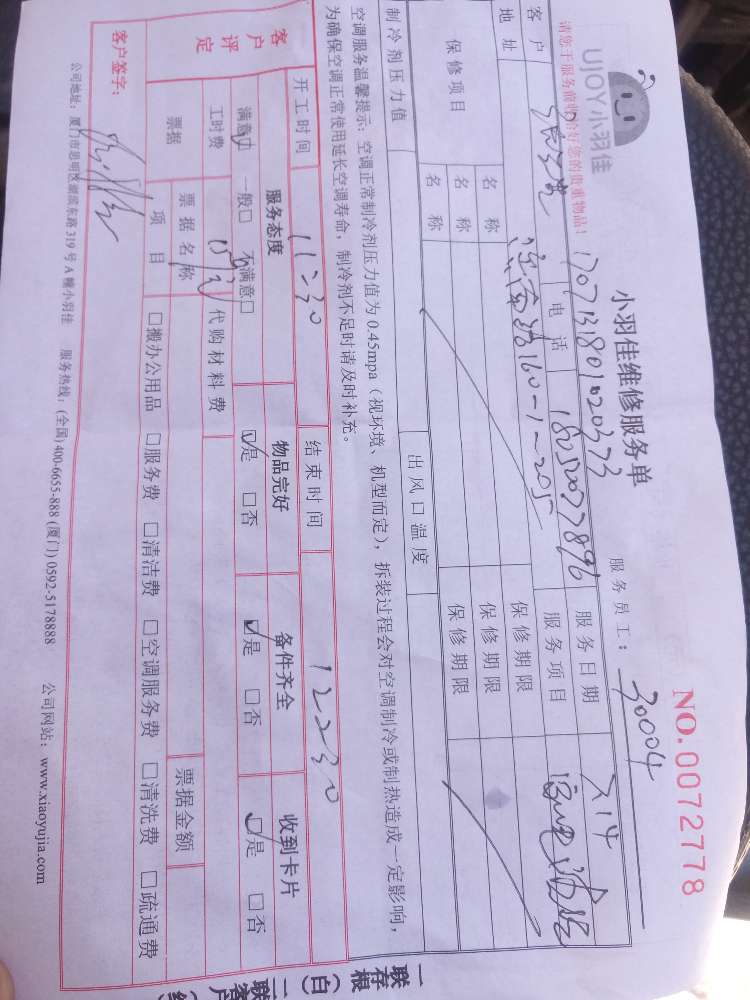 UJOY小羽佳
小羽佳维修服务单
NO.0072778
请您于服务前收拾好您的贵重物品!
1707131801020373
服务员工: 30004
客户
电话
18030077896
服务日期
7.14
地址
160-1-205
服务项目
保修项目
名称
保修期限
名称
保修期限
名称
保修期限
制冷剂压力值
出风口温度
空调服务温馨提示:空调正常制冷剂压力值为0.45mpa(视环境、机型而定),拆装过程会对空调制冷或制热造成一定影响,
为确保空调正常使用延长空调寿命,制冷剂不足时请及时补充。
开工时间
11:30
结束时间
12:30
客户评定
服务态度
物品完好
备件齐全
收到卡片
满意☑ 一般□ 不满意□
☑是 □否
☑是 □否
☑是 □否
工时费
150元
代购材料费
票据
票据名称
票据金额
项目
□搬办公用品 □服务费 □清洁费 □空调服务费 □清洗费 □疏通费
客户签字:
公司地址:厦门市思明区湖滨东路319号A幢小羽佳 服务热线:(全国)400-6655-888 (厦门) 0592-5178888 公司网站:www.xiaoyujia.com
一联存根(白)
二联客户